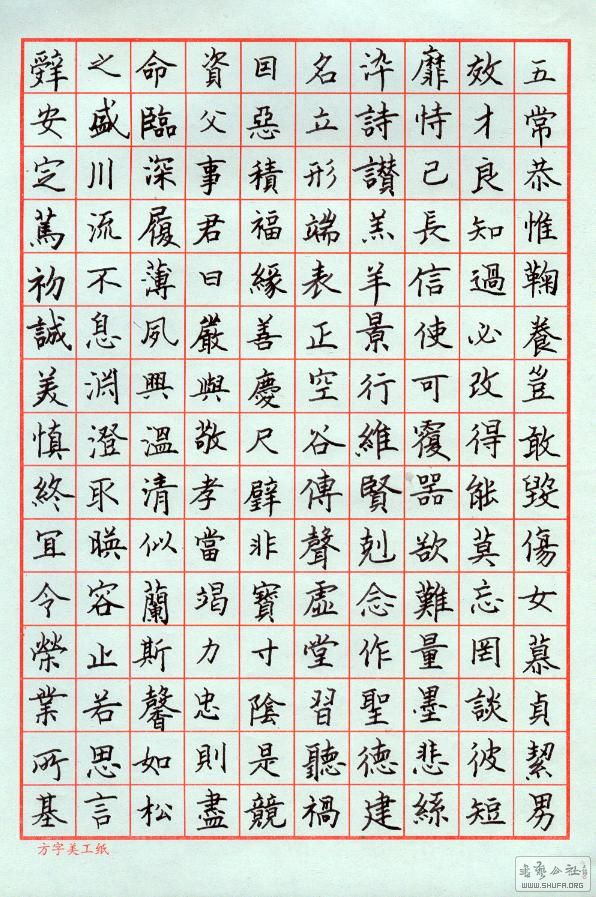 五常恭惟鞠養豈敢毀傷女慕貞絜男
效才良知過必改得能莫忘罔談彼短
靡恃己長信使可覆器欲難量墨悲絲
染詩讃羔羊景行維賢剋念作聖德建
名立形端表正空谷傳聲虛堂習聽禍
因惡積福緣善慶尺璧非寶寸陰是競
資父事君曰嚴與敬孝當竭力忠則盡
命臨深履薄夙興溫清似蘭斯馨如松
之盛川流不息淵澄取暎容止若思言
辭安定篤初誠美慎終宜令榮業所基
方字美工纸
书艺公社
WWW.SHUFA.ORG